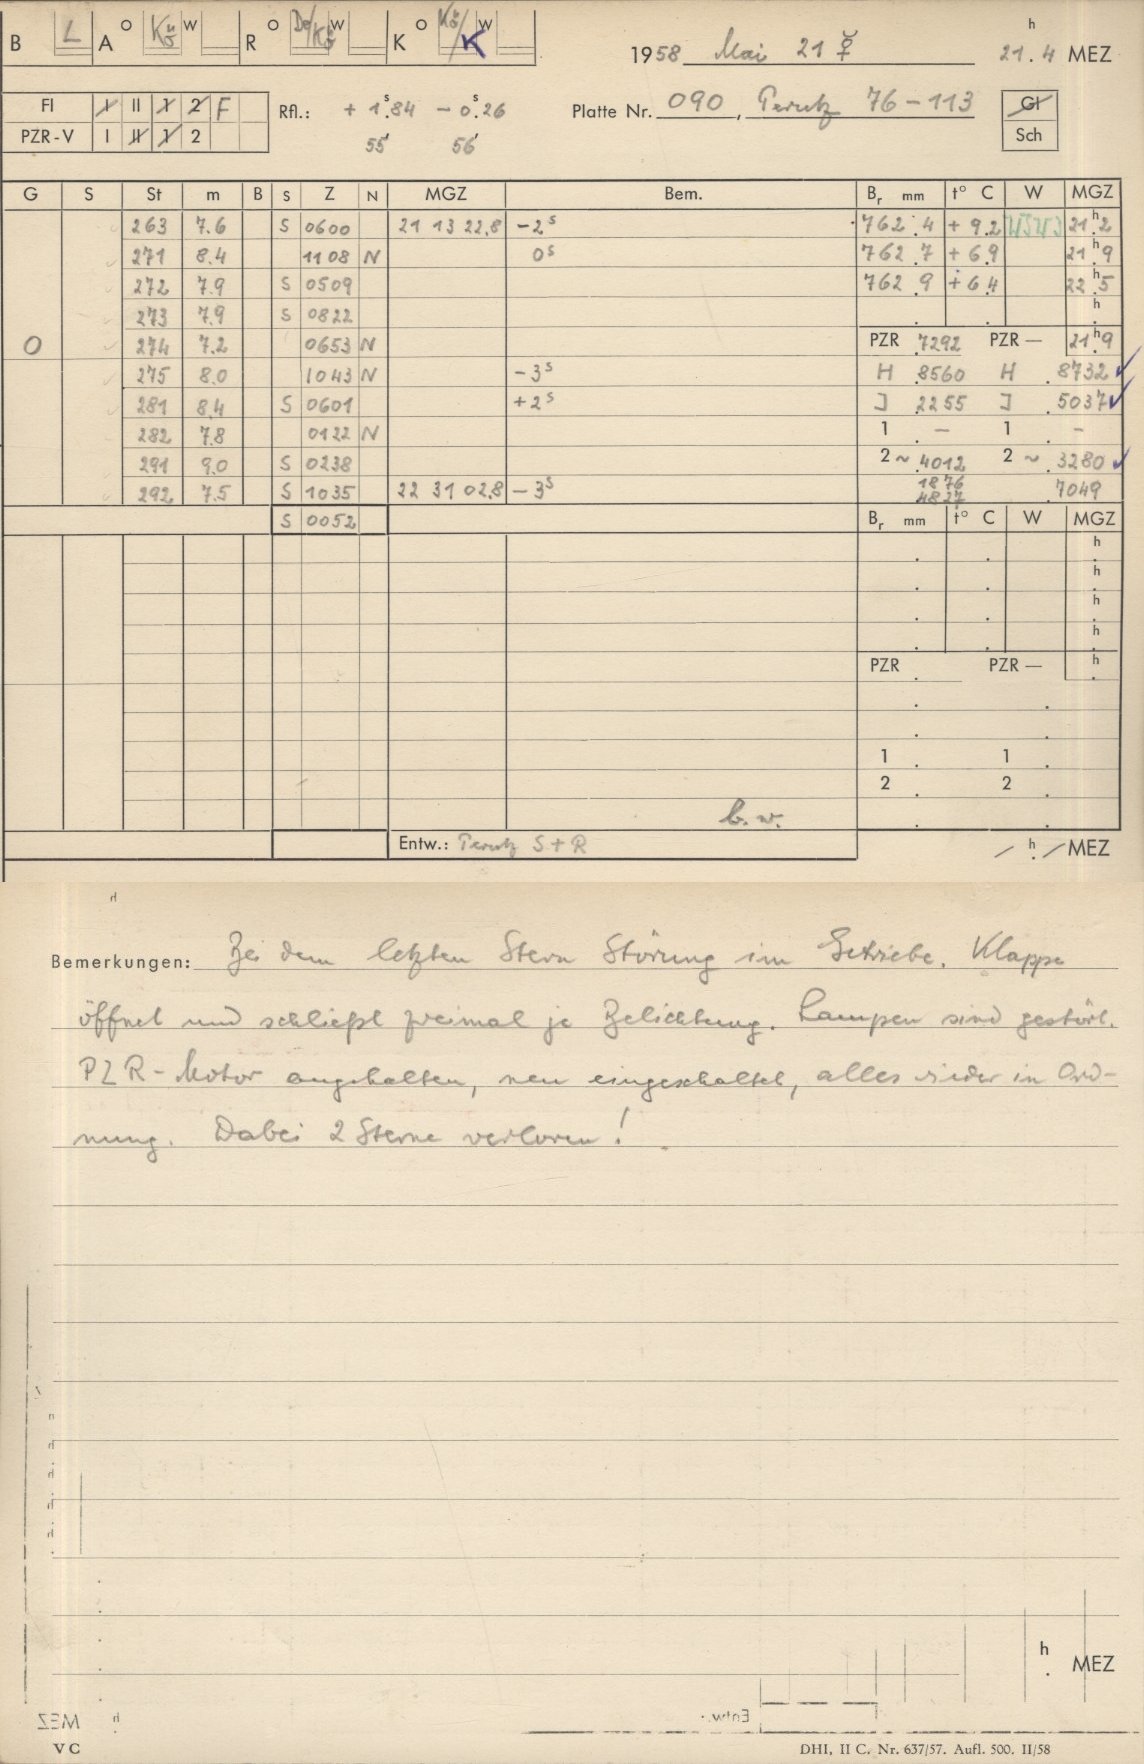 B L A O Kü W R O Do/Kö W K O Kö/K W
1958 Mai 21 ☿ 21.4 h MEZ
FI I II 1 2 F
PZR-V I II 1 2
Rfl.: + 1ˢ.84 − 0ˢ.26
55' 56'
Platte Nr. 090, Perutz 76-113
Gl
Sch
G S St m B s Z N MGZ Bem. Bᵣ mm t° C W MGZ
263 7.6 S 0600 21 13 22.8 −2ˢ 762.4 +9.2 21ʰ.2
271 8.4 1108 N 0ˢ 762.7 +6.9 21ʰ.9
272 7.9 S 0509 762.9 +6.4 22ʰ.5
273 7.9 S 0822 h
O 274 7.2 0653 N PZR .7292 PZR — 21ʰ.9
275 8.0 1043 N −3ˢ H .8560 H .8732 ✓
281 8.4 S 0601 +2ˢ J 2255 J .5037 ✓
282 7.8 0122 N 1 . − 1 . −
291 9.0 S 0238 2 ~ .4012 2 ~ .3280 ✓
292 7.5 S 1035 22 31 02.8 −3ˢ 1876 .7049
4827
S 0052 Bᵣ mm t° C W MGZ
h
h
h
h
PZR . PZR — h
1 . 1 .
2 . 2 .
b.w.
Entw.: Perutz S+R h MEZ
Bemerkungen: Bei dem letzten Stern Störung im Getriebe. Klappe
öffnet und schließt zweimal je Belichtung. Lampen sind gestört.
PZR-Motor angehalten, neu eingeschaltet, alles wieder in Ord-
nung. Dabei 2 Sterne verloren!
h
. MEZ
Entw.:
MEZ h
VC
DHI, II C. Nr. 637/57. Aufl. 500. II/58